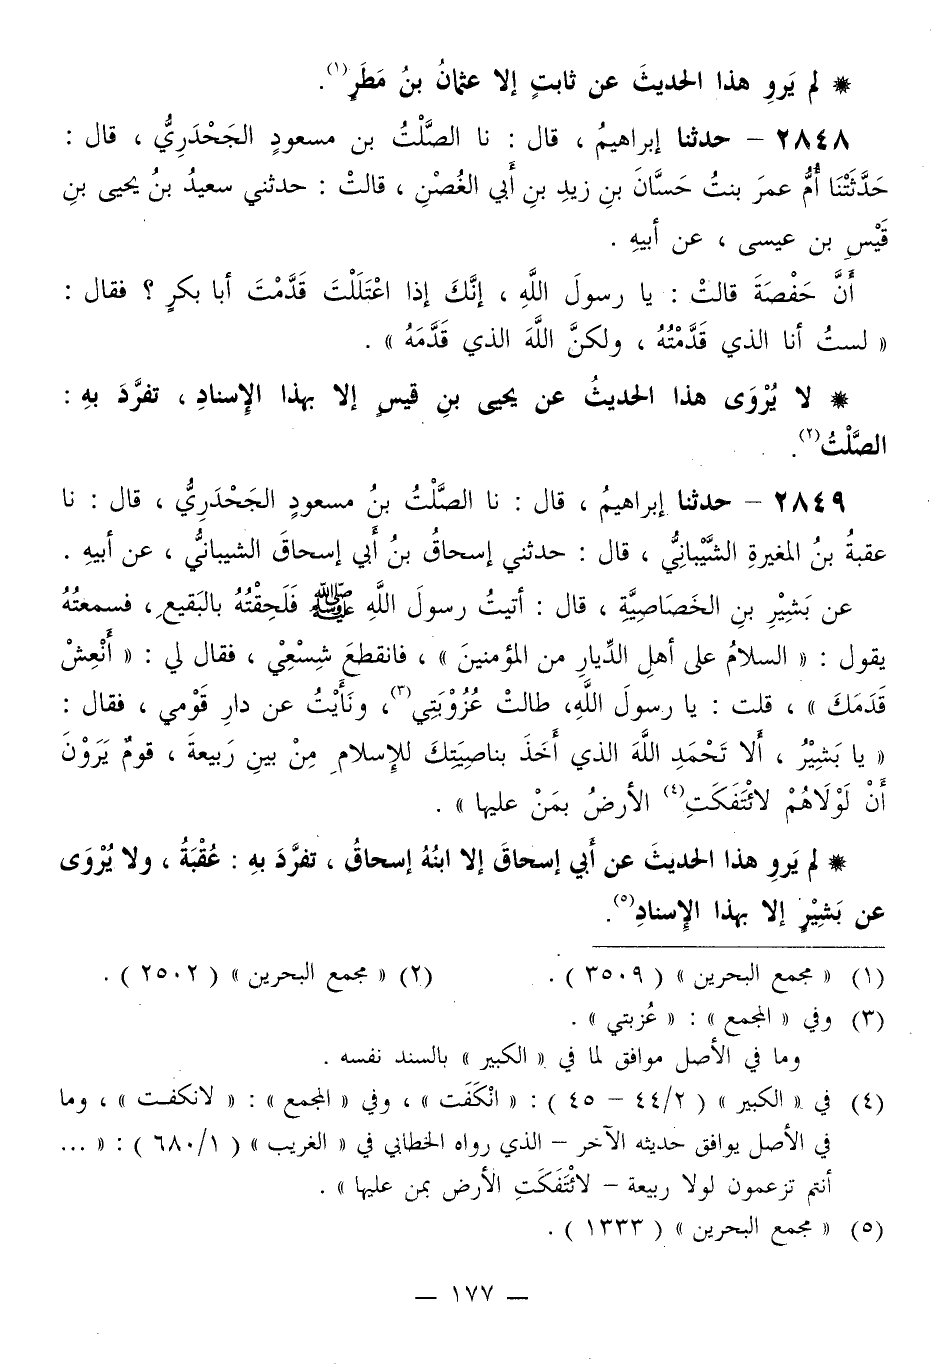 * لم يَروِ هذا الحديثَ عن ثابتٍ إلا عثمانُ بنُ مَطَرٍ(١).
٢٨٤٨ – حدثنا إبراهيمُ ، قال : نا الصَّلْتُ بن مسعودٍ الجَحْدَرِيُّ ، قال :
حَدَّثَتْنَا أُمُّ عمرَ بنتُ حَسَّانَ بنِ زيدِ بنِ أَبي الغُصْنِ ، قالتْ : حدثني سعيدُ بنُ يحيى بنِ
قَيْسِ بن عيسى ، عن أبيهِ .
أَنَّ حَفْصَةَ قالتْ : يا رسولَ اللَّهِ ، إنَّكَ إذا اعْتَلَلْتَ قَدَّمْتَ أبا بكرٍ ؟ فقال :
« لستُ أنا الذي قَدَّمْتُهُ ، ولكنَّ اللَّهَ الذي قَدَّمَهُ » .
* لا يُرْوَى هذا الحديثُ عن يحيى بنِ قيسٍ إلا بهذا الإِسنادِ ، تفرَّدَ بهِ :
الصَّلْتُ(٢).
٢٨٤٩ – حدثنا إبراهيمُ ، قال : نا الصَّلْتُ بنُ مسعودٍ الجَحْدَرِيُّ ، قال : نا
عقبةُ بنُ المغيرةِ الشَّيْبانِيُّ ، قال : حدثني إسحاقُ بنُ أَبي إسحاقَ الشيبانيُّ ، عن أبيهِ .
عن بَشِيْرِ بنِ الخَصَاصِيَّةِ ، قال : أتيتُ رسولَ اللَّهِ ﷺ فَلَحِقْتُهُ بالبَقيعِ ، فسمعتُهُ
يقول : « السلامُ على أهلِ الدِّيارِ من المؤمنينَ » ، فانقطعَ شِسْعِيْ ، فقال لي : « أَنْعِشْ
قَدَمَكَ » ، قلت : يا رسولَ اللَّهِ، طالتْ عُزُوْبَتِي(٣)، ونَأَيْتُ عن دارِ قَوْمي ، فقال :
« يا بَشِيْرُ ، أَلا تَحْمَدِ اللَّهَ الذي أَخَذَ بناصِيَتِكَ للإِسلامِ مِنْ بينِ رَبيعةَ ، قومٌ يَرَوْنَ
أَنْ لَوْلَاهُمْ لائْتَفَكَتِ(٤) الأرضُ بمَنْ عليها » .
* لم يَروِ هذا الحديثَ عن أَبي إسحاقَ إلا ابنُهُ إسحاقُ ، تفرَّدَ بهِ : عُقْبَةُ ، ولا يُرْوَى
عن بَشِيْرٍ إلا بهذا الإِسنادِ(٥).
(١) « مجمع البحرين » ( ٣٥٠٩ ) . (٢) « مجمع البحرين » ( ٢٥٠٢ ) .
(٣) وفي « المجمع » : « عُزبتي » .
وما في الأصل موافق لما في « الكبير » بالسند نفسه .
(٤) في « الكبير » ( ٤٤/٢ – ٤٥ ) : « انْكَفَت » ، وفي « المجمع » : « لانكفـت » ، وما
في الأصل يوافق حديثه الآخر – الذي رواه الخطابي في « الغريب » ( ٦٨٠/١ ) : « ...
أنتم تزعمون لولا ربيعة – لائْتَفَكَتِ الأرض بمن عليها » .
(٥) « مجمع البحرين » ( ١٣٣٣ ) .
— ١٧٧ —